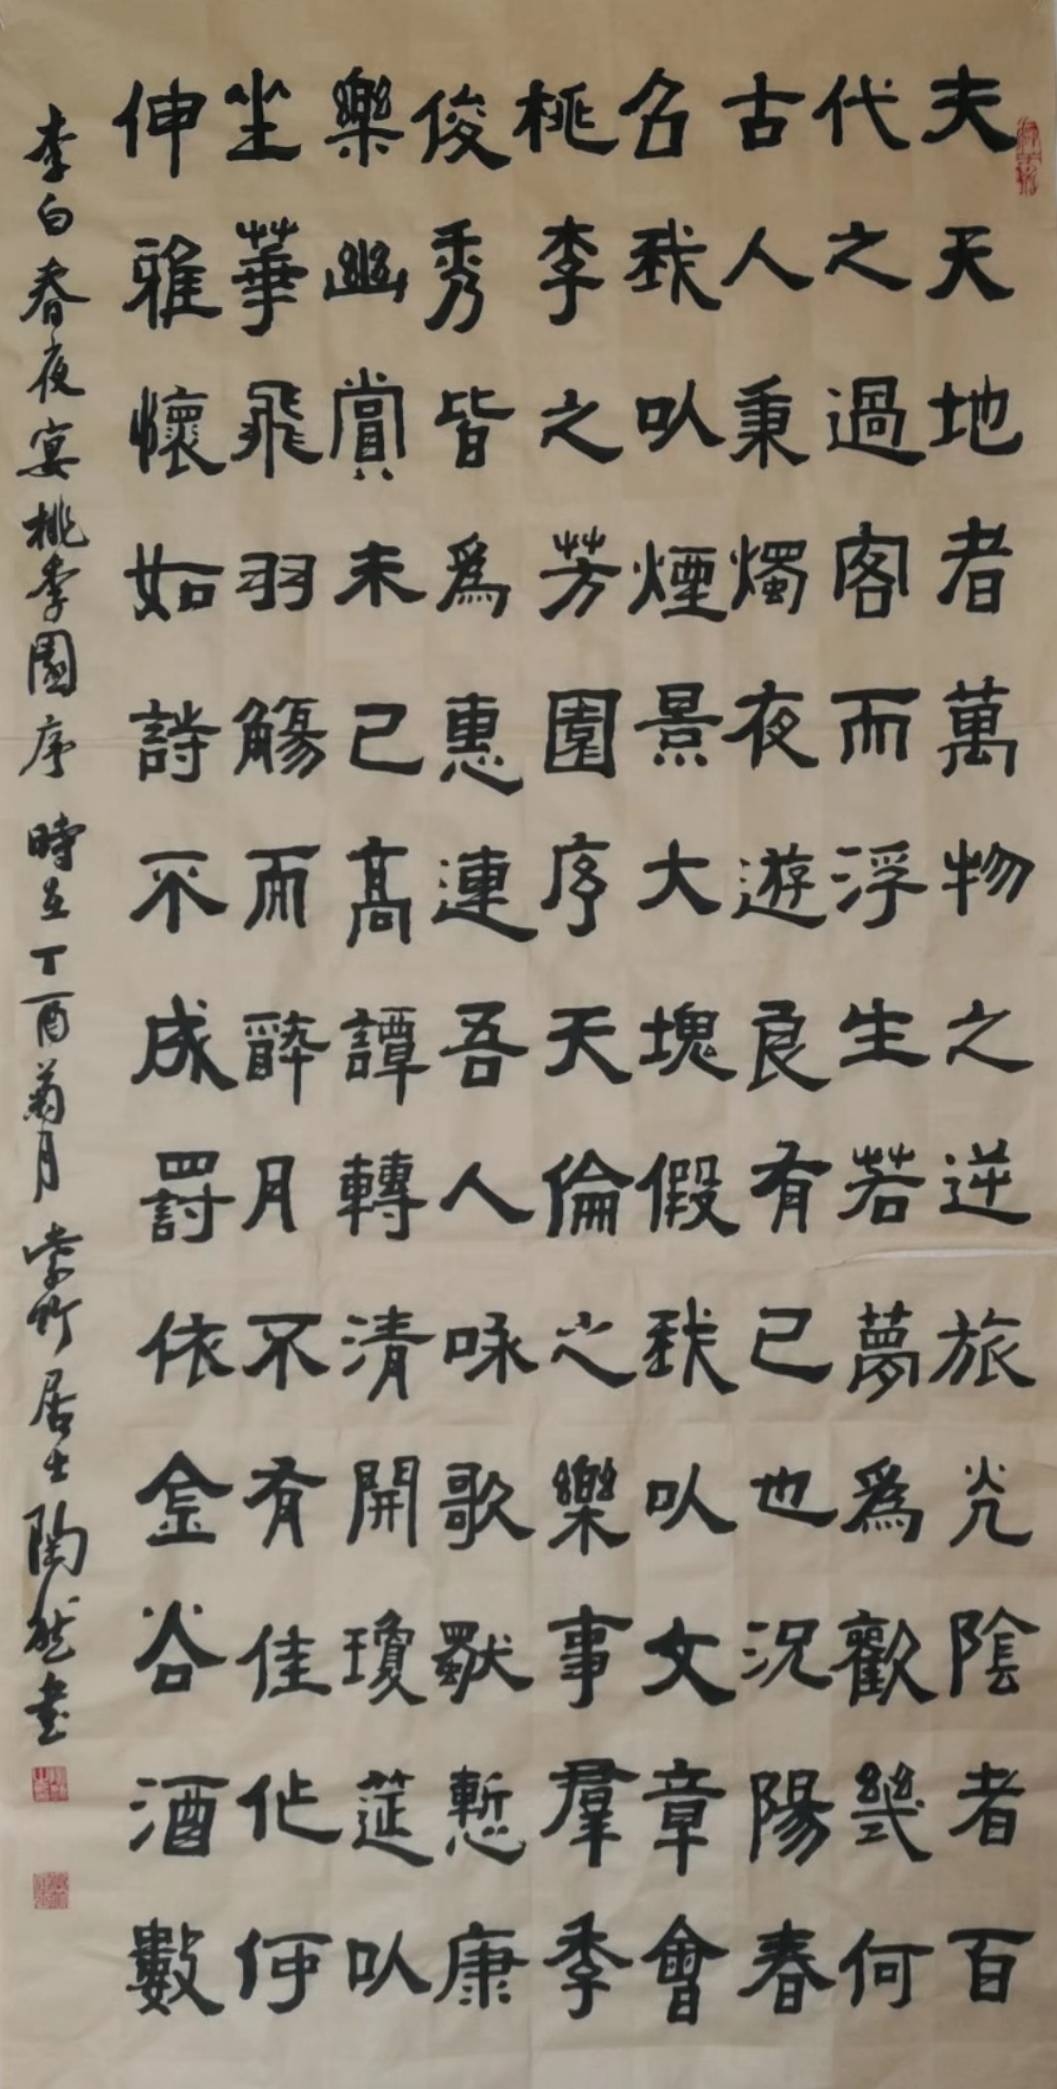 夫天地者萬物之逆旅光陰者百
代之過客而浮生若夢為歡幾何
古人秉燭夜遊良有已也況陽春
名我以煙景大塊假我以文章會
桃李之芳園序天倫之樂事羣季
俊秀皆為惠連吾人咏歌獨慙康
樂幽賞未已高譚轉清開瓊筵以
坐華飛羽觴而醉月不有佳作何
伸雅懷如詩不成罰依金谷酒數
李白春夜宴桃李園序 時在丁酉菊月 紫竹居士陶然書